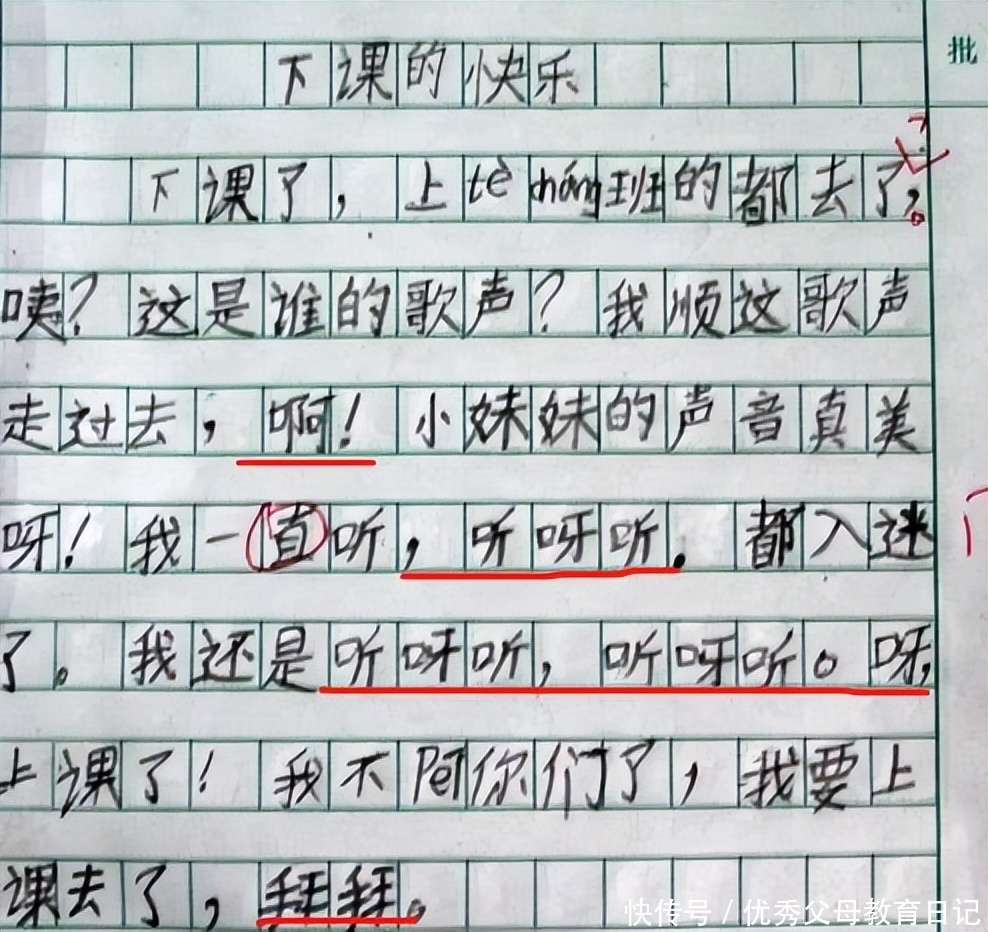 下课的快乐
批
下课了，上tè cháng班的都去了。
咦？这是谁的歌声？我顺这歌声
走过去，啊！小妹妹的声音真美
呀！我一直听，听呀听。都入迷
了。我还是听呀听，听呀听。呀，
上课了！我不pei你们了，我要上
课去了，拜拜。
快传号/优秀父母教育日记